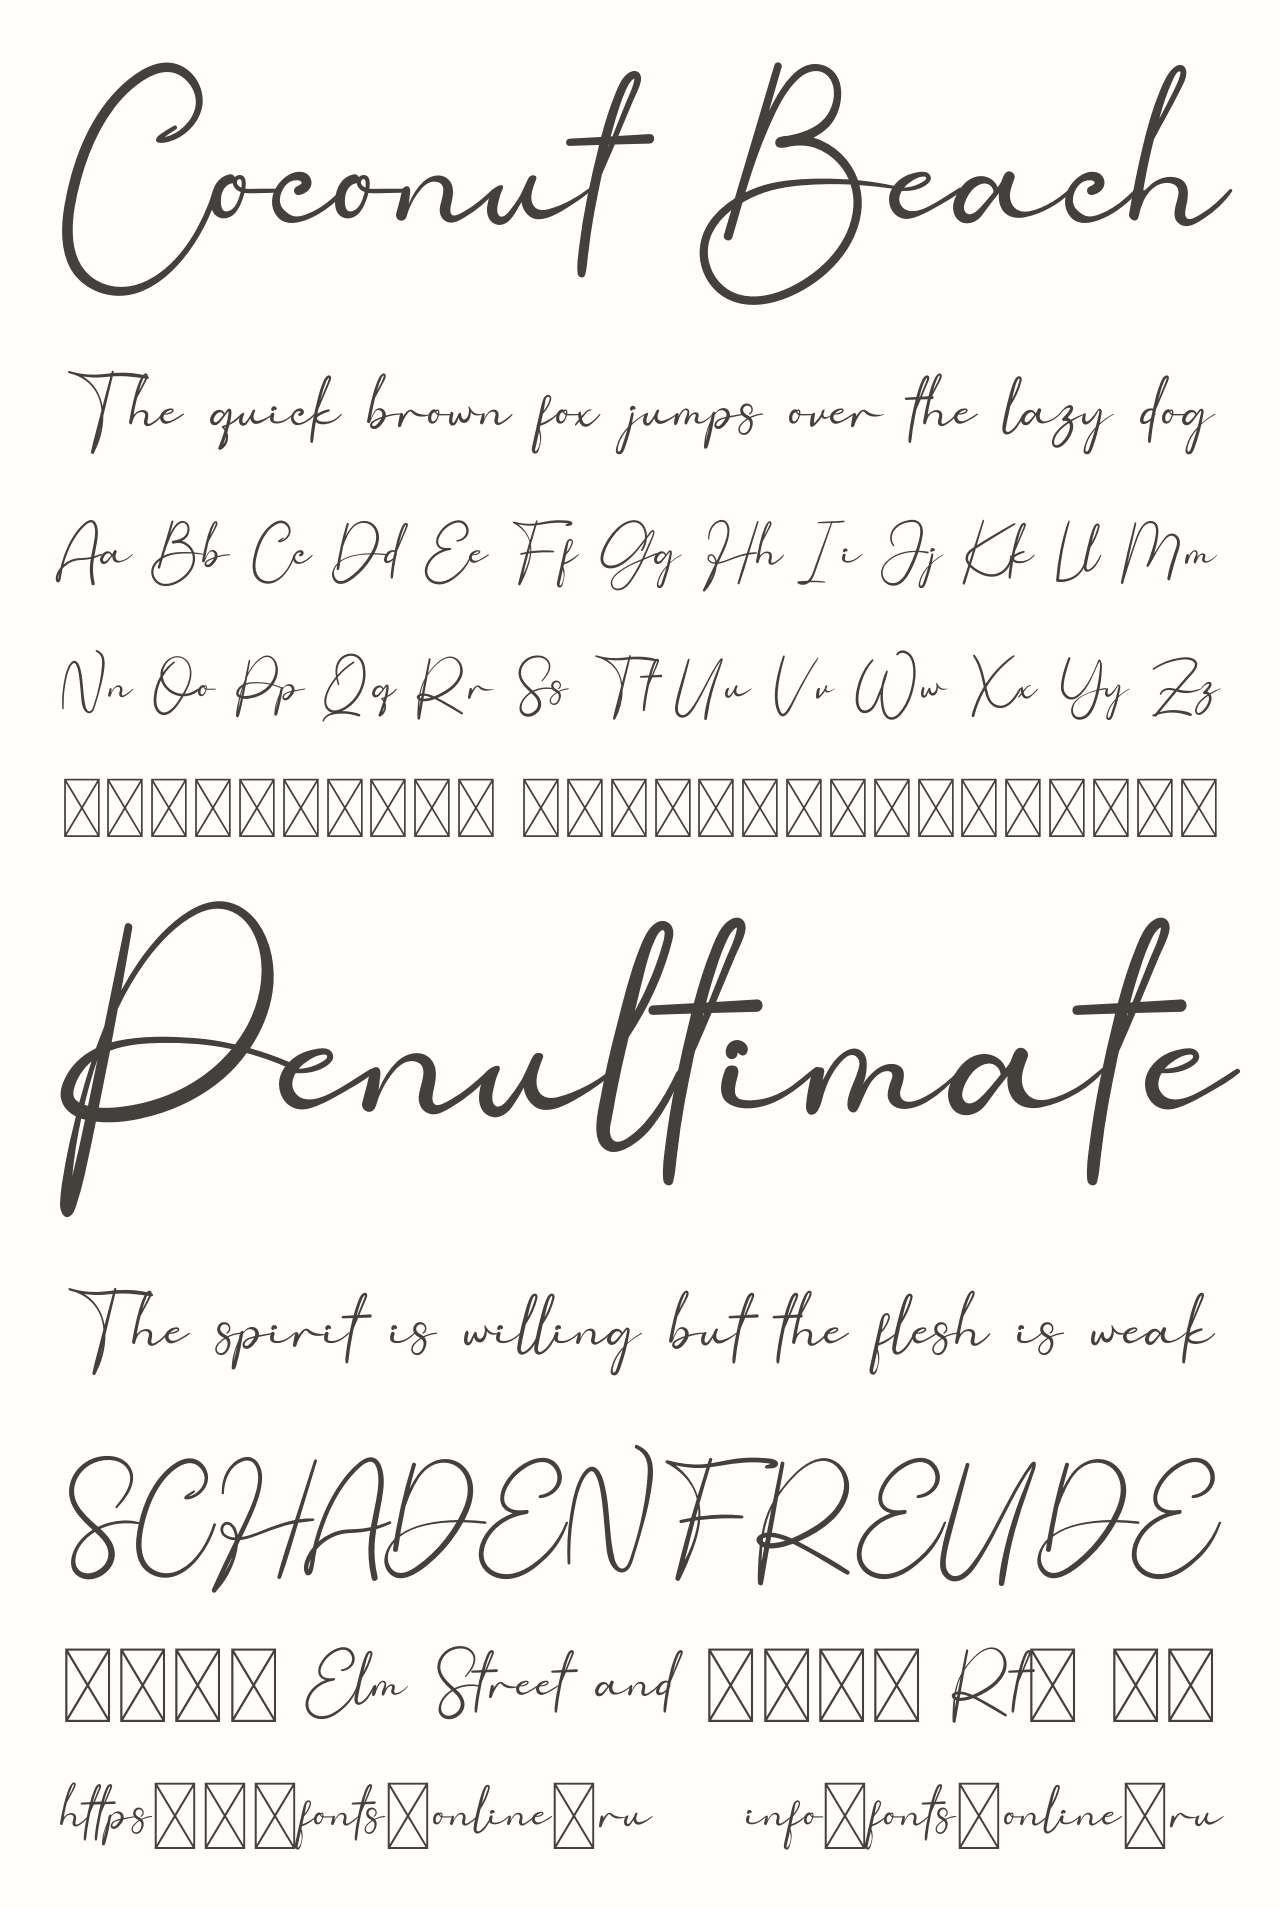 Coconut Beach
The quick brown fox jumps over the lazy dog
Aa Bb Cc Dd Ee Ff Gg Hh Ii Jj Kk Ll Mm
Nn Oo Pp Qq Rr Ss Tt Uu Vv Ww Xx Yy Zz
Penultimate
The spirit is willing but the flesh is weak
SCHADENFREUDE
Elm Street and Rt
https fonts online ru info fonts online ru